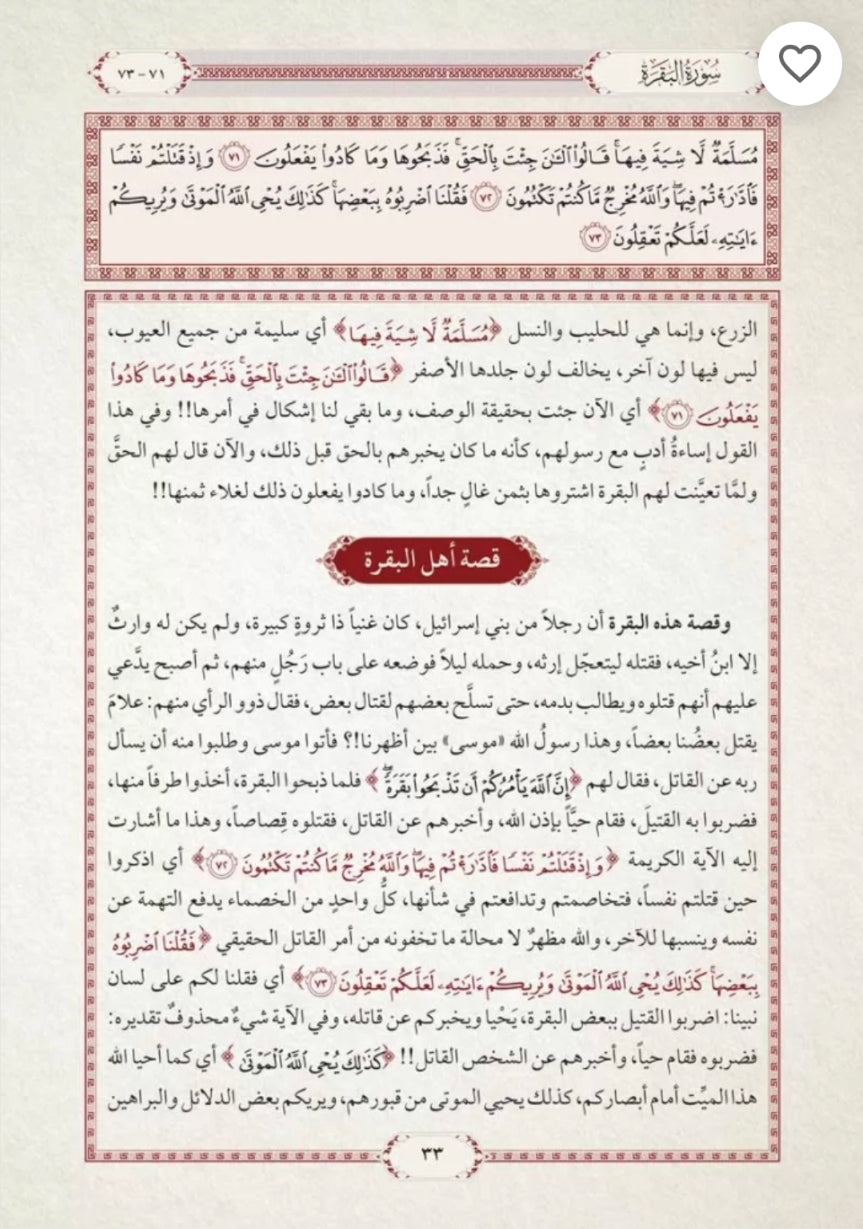 سُورَةُ البَقَرَةِ
٧١ - ٧٣
مُسَلَّمَةٌ لَّا شِيَةَ فِيهَاۚ قَالُوا۟ ٱلْـَٰٔنَ جِئْتَ بِٱلْحَقِّۚ فَذَبَحُوهَا وَمَا كَادُوا۟ يَفْعَلُونَ ٧١ وَإِذْ قَتَلْتُمْ نَفْسًا
فَٱدَّٰرَْٰٔتُمْ فِيهَاۖ وَٱللَّهُ مُخْرِجٌ مَّا كُنتُمْ تَكْتُمُونَ ٧٢ فَقُلْنَا ٱضْرِبُوهُ بِبَعْضِهَاۚ كَذَٰلِكَ يُحْىِ ٱللَّهُ ٱلْمَوْتَىٰ وَيُرِيكُمْ
ءَايَٰتِهِۦ لَعَلَّكُمْ تَعْقِلُونَ ٧٣
الزرع، وإنما هي للحليب والنسل ﴿مُسَلَّمَةٌ لَّا شِيَةَ فِيهَا﴾ أي سليمة من جميع العيوب،
ليس فيها لون آخر، يخالف لون جلدها الأصفر ﴿قَالُوا۟ ٱلْـَٰٔنَ جِئْتَ بِٱلْحَقِّۚ فَذَبَحُوهَا وَمَا كَادُوا۟
يَفْعَلُونَ ٧١﴾ أي الآن جئت بحقيقة الوصف، وما بقي لنا إشكال في أمرها!! وفي هذا
القول إساءةُ أدبٍ مع رسولهم، كأنه ما كان يخبرهم بالحق قبل ذلك، والآن قال لهم الحقَّ
ولمَّا تعيَّنت لهم البقرة اشتروها بثمن غالٍ جداً، وما كادوا يفعلون ذلك لغلاء ثمنها!!
قصة أهل البقرة
وقصة هذه البقرة أن رجلاً من بني إسرائيل، كان غنياً ذا ثروةٍ كبيرة، ولم يكن له وارثٌ
إلا ابنُ أخيه، فقتله ليتعجّل إرثه، وحمله ليلاً فوضعه على باب رَجُلٍ منهم، ثم أصبح يدَّعي
عليهم أنهم قتلوه ويطالب بدمه، حتى تسلَّح بعضهم لقتال بعض، فقال ذوو الرأي منهم: علامَ
يقتل بعضُنا بعضاً، وهذا رسولُ الله «موسى» بين أظهرنا!؟ فأتوا موسى وطلبوا منه أن يسأل
ربه عن القاتل، فقال لهم ﴿إِنَّ ٱللَّهَ يَأْمُرُكُمْ أَن تَذْبَحُوا۟ بَقَرَةًۖ﴾ فلما ذبحوا البقرة، أخذوا طرفاً منها،
فضربوا به القتيلَ، فقام حيَّاً بإذن الله، وأخبرهم عن القاتل، فقتلوه قِصاصاً، وهذا ما أشارت
إليه الآية الكريمة ﴿وَإِذْ قَتَلْتُمْ نَفْسًا فَٱدَّٰرَْٰٔتُمْ فِيهَاۖ وَٱللَّهُ مُخْرِجٌ مَّا كُنتُمْ تَكْتُمُونَ ٧٢﴾ أي اذكروا
حين قتلتم نفساً، فتخاصمتم وتدافعتم في شأنها، كلُّ واحدٍ من الخصماء يدفع التهمة عن
نفسه وينسبها للآخر، والله مظهرٌ لا محالة ما تخفونه من أمر القاتل الحقيقي ﴿فَقُلْنَا ٱضْرِبُوهُ
بِبَعْضِهَاۚ كَذَٰلِكَ يُحْىِ ٱللَّهُ ٱلْمَوْتَىٰ وَيُرِيكُمْ ءَايَٰتِهِۦ لَعَلَّكُمْ تَعْقِلُونَ ٧٣﴾ أي فقلنا لكم على لسان
نبينا: اضربوا القتيل ببعض البقرة، يَحْيا ويخبركم عن قاتله، وفي الآية شيءٌ محذوفٌ تقديره:
فضربوه فقام حياً، وأخبرهم عن الشخص القاتل!! ﴿كَذَٰلِكَ يُحْىِ ٱللَّهُ ٱلْمَوْتَىٰ﴾ أي كما أحيا الله
هذا الميِّت أمام أبصاركم، كذلك يحيي الموتى من قبورهم، ويريكم بعض الدلائل والبراهين
٣٣